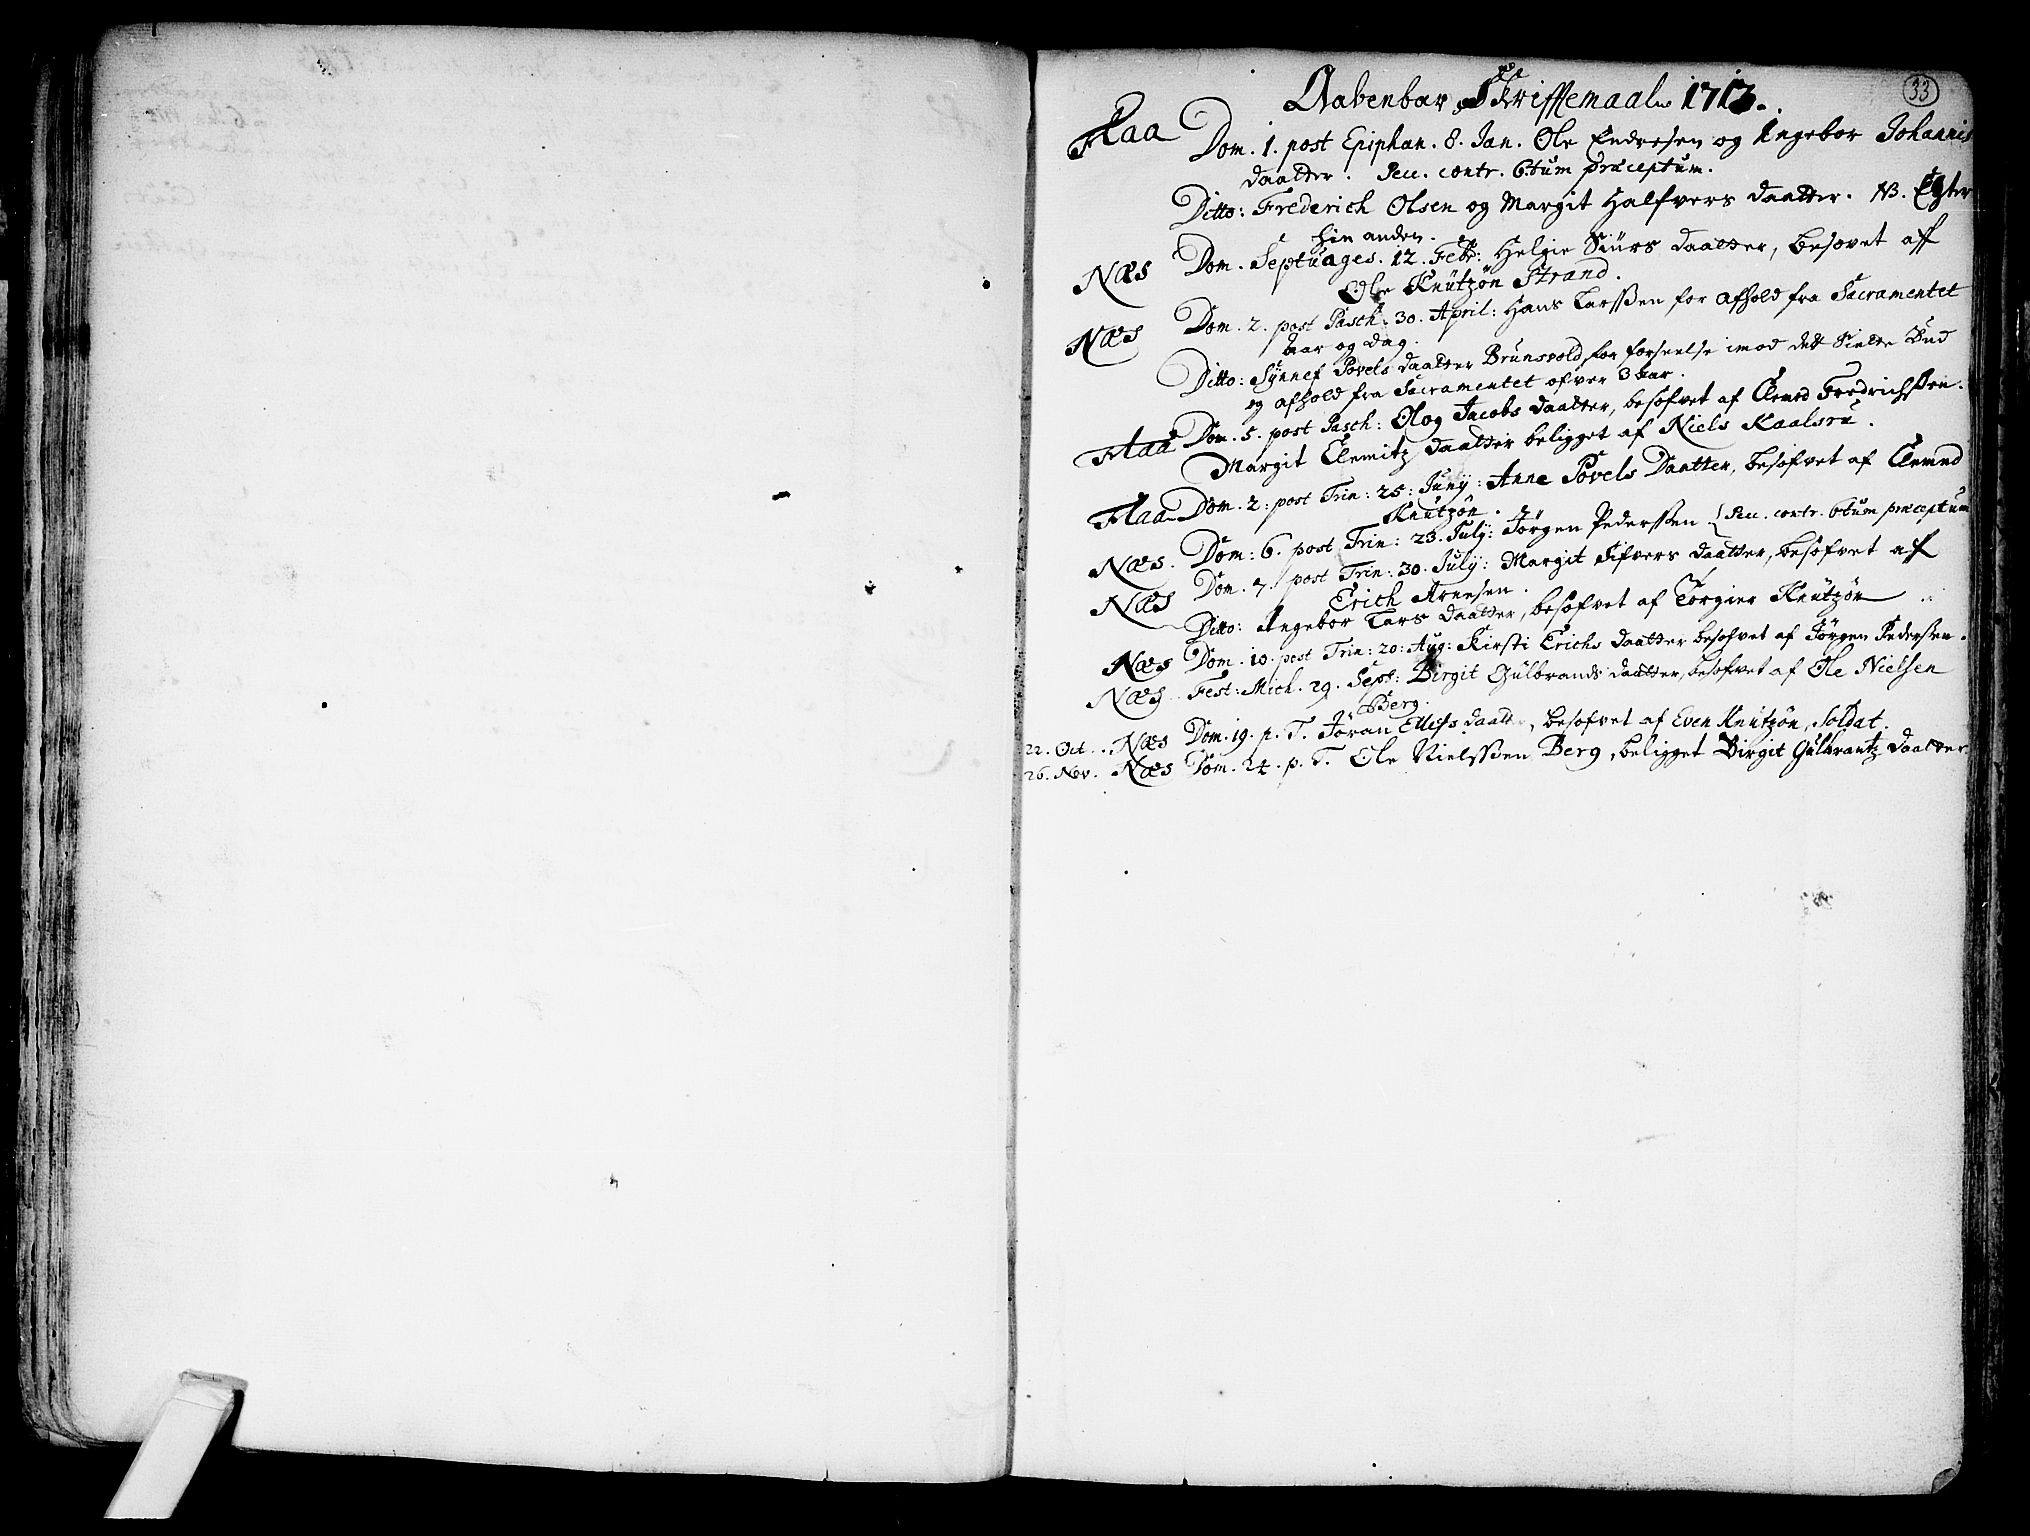 33
Aabenbar Skrifftemaal 1713.
Flaa Dom. 1. post Epiphan. 8. Jan. Ole Endresen og Ingebor Johannis
daatter. Pecc. contr. 6tum præceptum.
Ditto: Frederich Olsen og Margit Halfvers daatter. NB. Egter
hin anden.
Næs Dom. Septuages. 12. Febr: Helgie Siürs daatter, besovet aff
Ole Knützön Strand.
Næs Dom. 2. post Pasch: 30. April: Hans Larssen for afhold fra Sacramentet
aar og dag.
Ditto: Synnef Povels daatter Brunsvold, for forseelse imod det Siette Bud
og afhold fra Sacramentet ofver 3 aar.
Flaa Dom. 5. post Pasch: Olog Jacobs daatter, besofvet af Clemed Fredrichssen.
Margit Clemitz daatter beligget af Niels Kaalsrü.
Flaa Dom. 2: post Trin: 25: Juny: Anne Povels Daatter, besofvet af Clemed
Knützön.
Næs. Dom: 6. post Trin: 23. July: Jörgen Pederssen Pecc. contr. 6tum præceptum
Næs Dom. 7. post Trin: 30. July: Margit Sifvers daatter, besofvet af
Erich Arnesen.
Ditto: Ingebor Lars daatter, besofvet af Torgier Knützön
Næs Dom. 10. post Trin: 20: Aug: Kirsti Erichs daatter besofvet af Jörgen Pederssen.
Næs Fest: Mich. 29. Sept: Birgit Gülbrands daatter, besofvet af Ole Nielsen
Berg.
22. Oct. Næs Dom. 19. p. T. Jöran Ellefs daatter, besofvet af Even Knützön, Soldat.
26. Nov. Næs Dom. 24. p. T. Ole Nielssen Berg, beligget Birgit Gülbrantz daatter